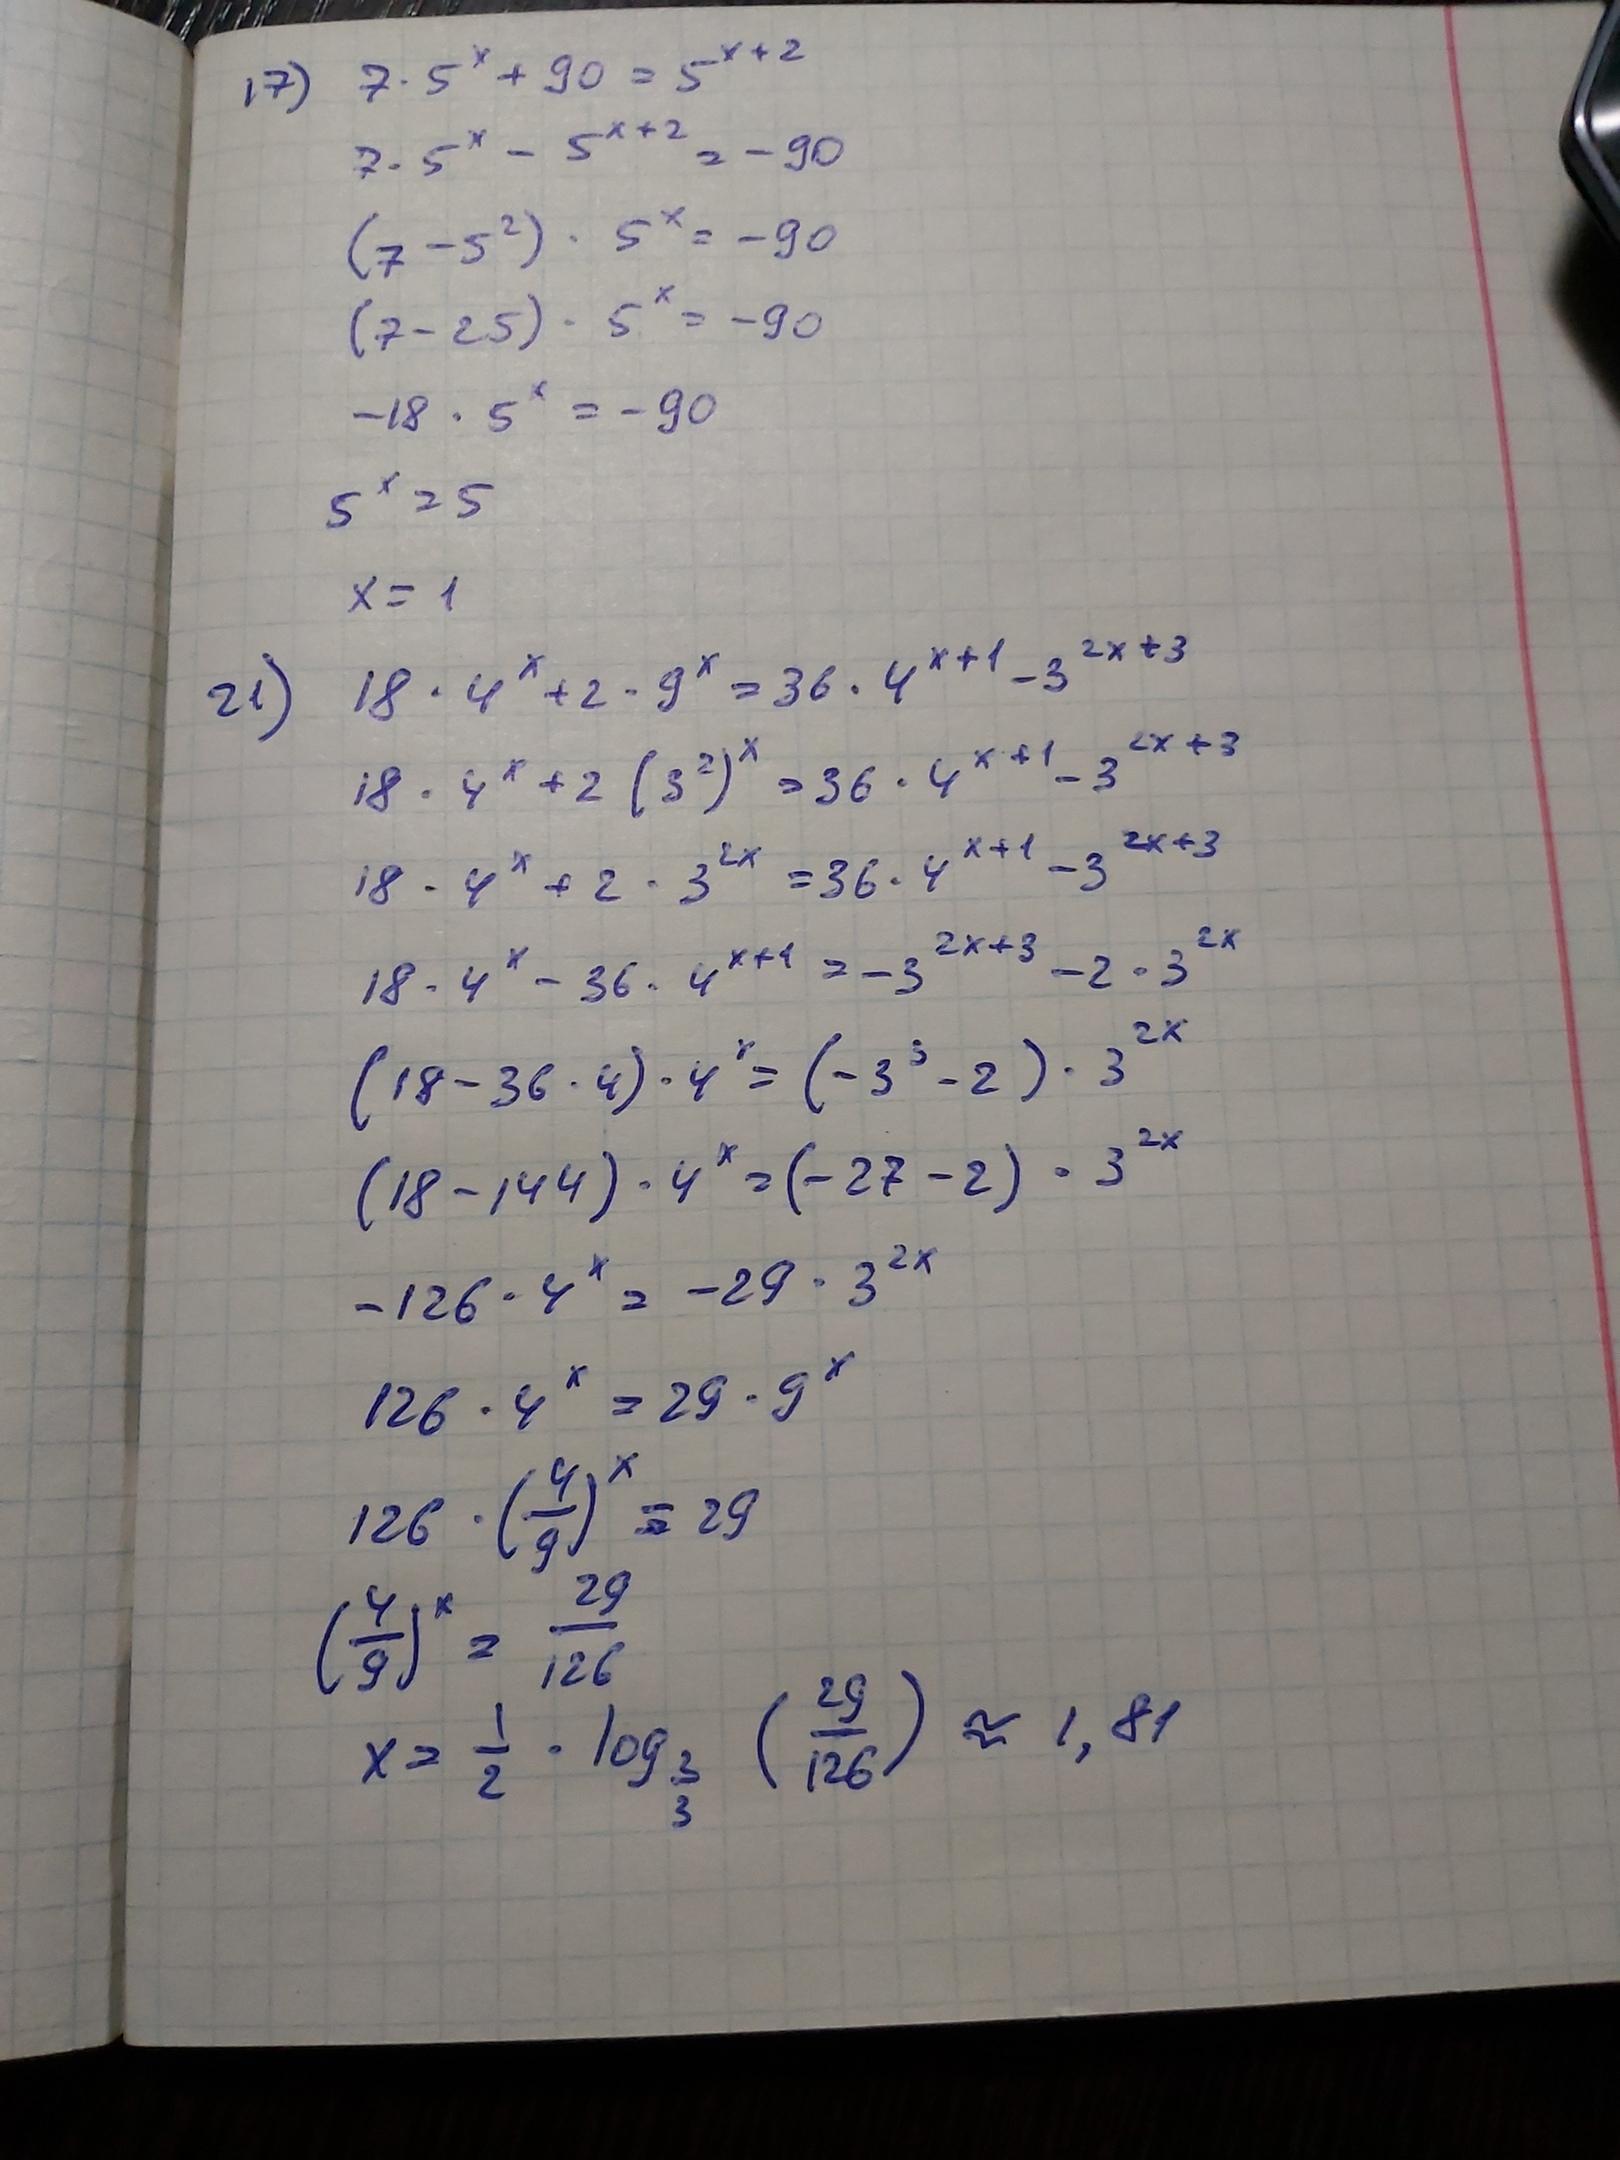 17) 7·5^x + 90 = 5^{x+2}
7·5^x - 5^{x+2} = -90
(7 - 5^2) · 5^x = -90
(7 - 25) · 5^x = -90
-18 · 5^x = -90
5^x = 5
x = 1
21) 18 · 4^x + 2 · 9^x = 36 · 4^{x+1} - 3^{2x+3}
18 · 4^x + 2 (3^2)^x = 36 · 4^{x+1} - 3^{2x+3}
18 · 4^x + 2 · 3^{2x} = 36 · 4^{x+1} - 3^{2x+3}
18 · 4^x - 36 · 4^{x+1} = -3^{2x+3} - 2 · 3^{2x}
(18 - 36 · 4) · 4^x = (-3^3 - 2) · 3^{2x}
(18 - 144) · 4^x = (-27 - 2) · 3^{2x}
-126 · 4^x = -29 · 3^{2x}
126 · 4^x = 29 · 9^x
126 · (4/9)^x = 29
(4/9)^x = 29/126
x = 1/2 · log_{3/3} (29/126) ≈ 1,81